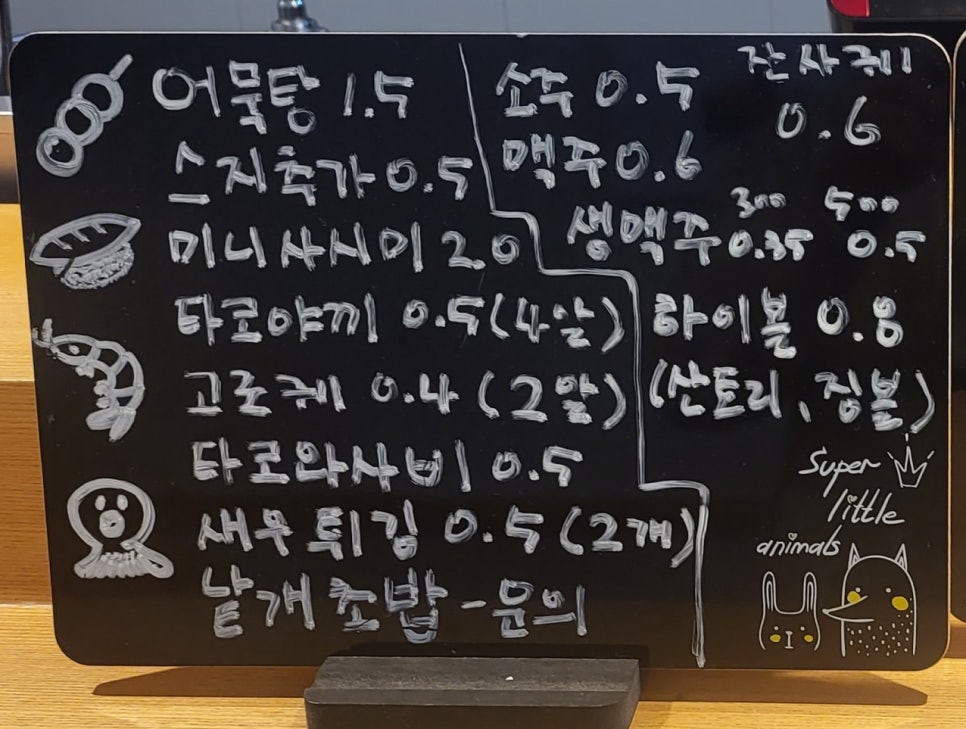 어묵탕 1.5
스지추가 0.5
미니사시미 20
타코야끼 0.5 (4알)
고로케 0.4 (2알)
타코와사비 0.5
새우 튀김 0.5 (2개)
낱개 초밥 - 문의
소주 0.5
맥주 0.6
잔사케
0.6
생맥주 300 0.35 500 0.5
하이볼 0.8
(산토리, 짐볼)
Super
little
animals